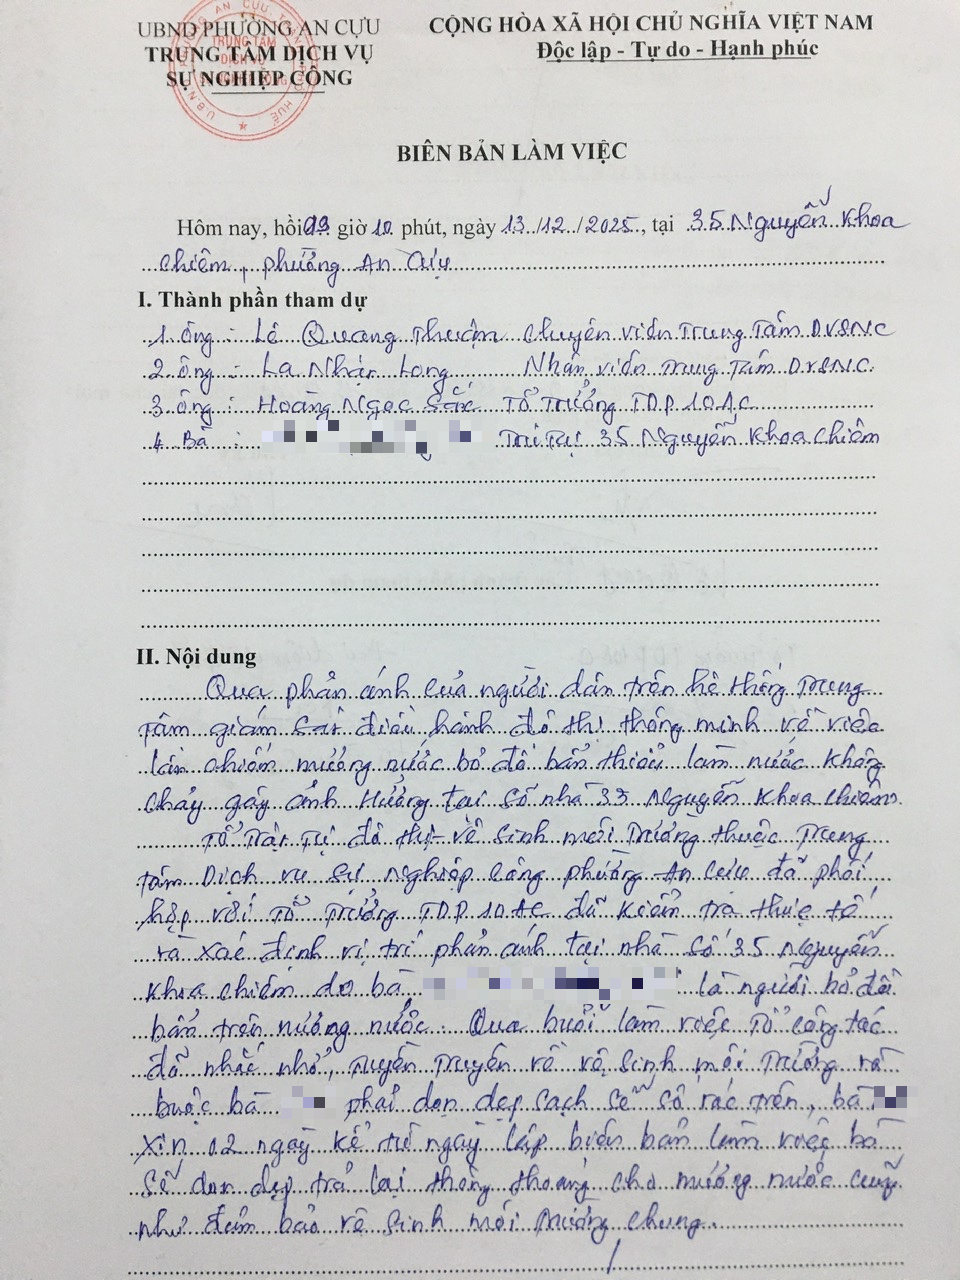 UBND PHƯỜNG AN CỰU
TRUNG TÂM DỊCH VỤ
SỰ NGHIỆP CÔNG
CỘNG HÒA XÃ HỘI CHỦ NGHĨA VIỆT NAM
Độc lập - Tự do - Hạnh phúc
BIÊN BẢN LÀM VIỆC
Hôm nay, hồi 09 giờ 10 phút, ngày 13/12/2025, tại 35 Nguyễn Khoa
Chiêm, phường An Cựu
I. Thành phần tham dự
1. Ông : Lê Quang Thuận Chuyên viên Trung Tâm DVSNC
2. Ông : La Nhật Long Nhân viên Trung Tâm DVSNC.
3. Ông : Hoàng Ngọc Sắc Tổ Trưởng TDP 10 AC
4. Bà : Trú Tại 35 Nguyễn Khoa Chiêm
II. Nội dung
Qua phản ánh của người dân trên hệ thống Trung
tâm giám sát điều hành đô thị thông minh về việc
lấn chiếm mương nước bỏ đồ bẩn thỉu làm nước không
chảy gây ảnh hưởng tại số nhà 35 Nguyễn Khoa Chiêm.
Tổ Trật Tự đô thị - vệ sinh môi trường thuộc Trung
tâm Dịch vụ sự nghiệp công phường An Cựu đã phối
hợp với Tổ Trưởng TDP 10 AC đã kiểm tra thực tế
và xác định vị trí phản ánh tại nhà số 35 Nguyễn
Khoa Chiêm do bà là người bỏ đồ
bẩn trên mương nước. Qua buổi làm việc Tổ công tác
đã nhắc nhở, tuyên truyền về vệ sinh môi trường và
buộc bà phải dọn dẹp sạch sẽ số rác trên, bà
xin 02 ngày kể từ ngày lập biên bản làm việc bà
sẽ dọn dẹp trả lại thông thoáng cho mương nước cũng
như đảm bảo vệ sinh môi trường chung.